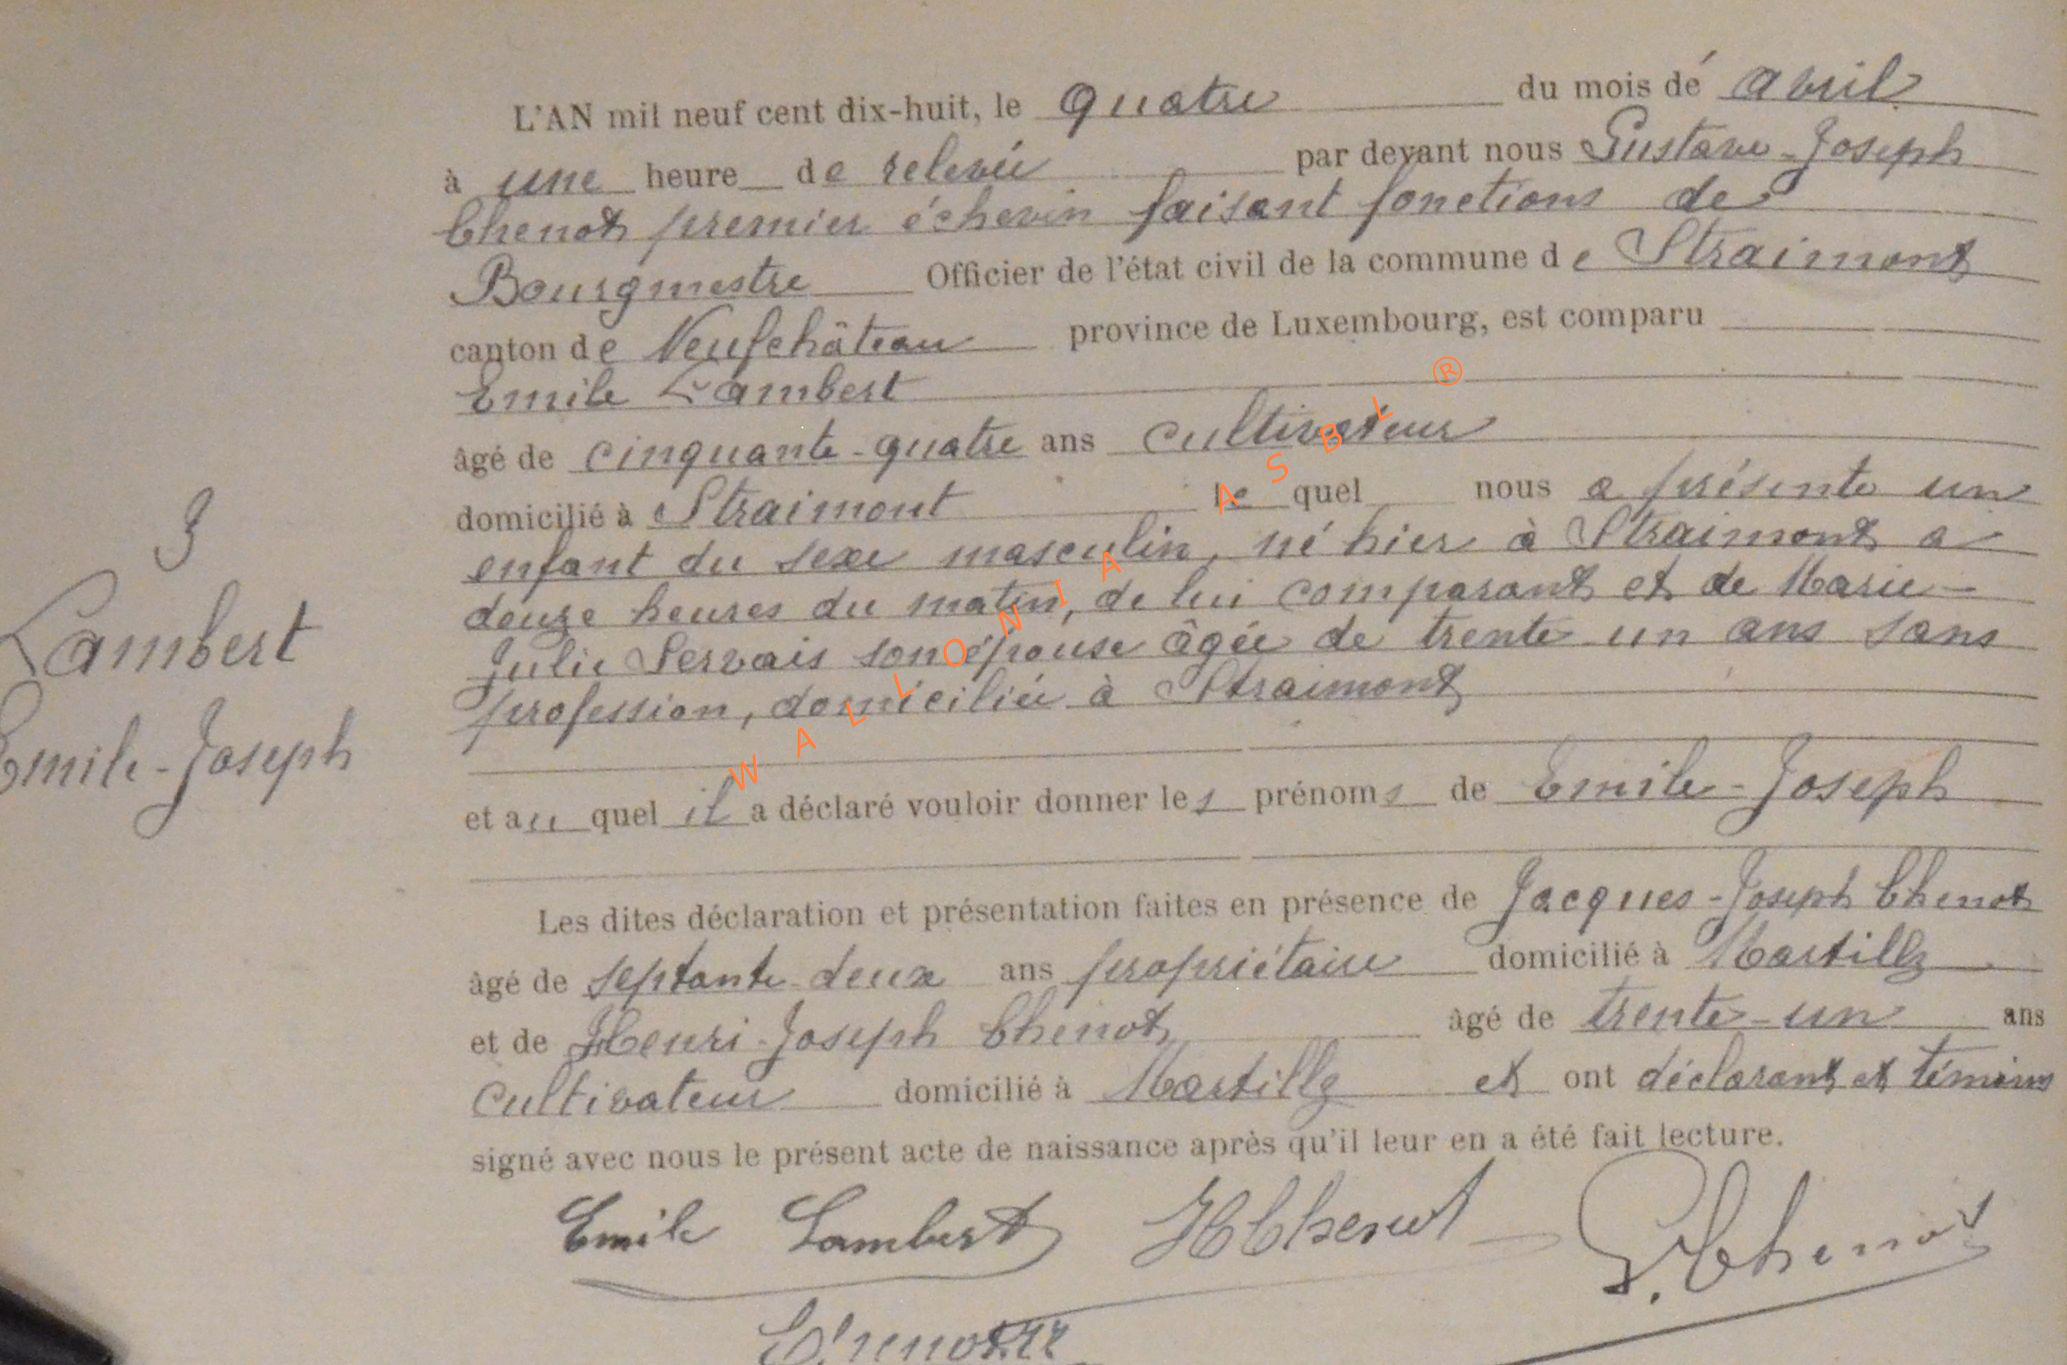 L'AN mil neuf cent dix-huit, le quatre du mois de avril
à une heure de relevée par devant nous Gustave-Joseph
Chenot premier échevin faisant fonctions de
Bourgmestre Officier de l'état civil de la commune de Straimont
canton de Neufchâteau province de Luxembourg, est comparu
Emile Lambert
âgé de cinquante-quatre ans cultivateur
domicilié à Straimont lequel nous a présenté un
enfant du sexe masculin, né hier à Straimont a
douze heures du matin, de lui comparant et de Marie-
Julie Servais son épouse âgée de trente un ans sans
profession, domiciliée à Straimont
3
Lambert
Emile-Joseph
et au quel il a déclaré vouloir donner les prénoms de Emile-Joseph
Les dites déclaration et présentation faites en présence de Jacques-Joseph Chenot
âgé de septante-deux ans propriétaire domicilié à Martilly
et de Henri-Joseph Chenot âgé de trente-un ans
cultivateur domicilié à Martilly et ont déclarant et témoins
signé avec nous le présent acte de naissance après qu'il leur en a été fait lecture.
Emile Lambert H Chenot G. Chenot
WALLONIA ASBL ®